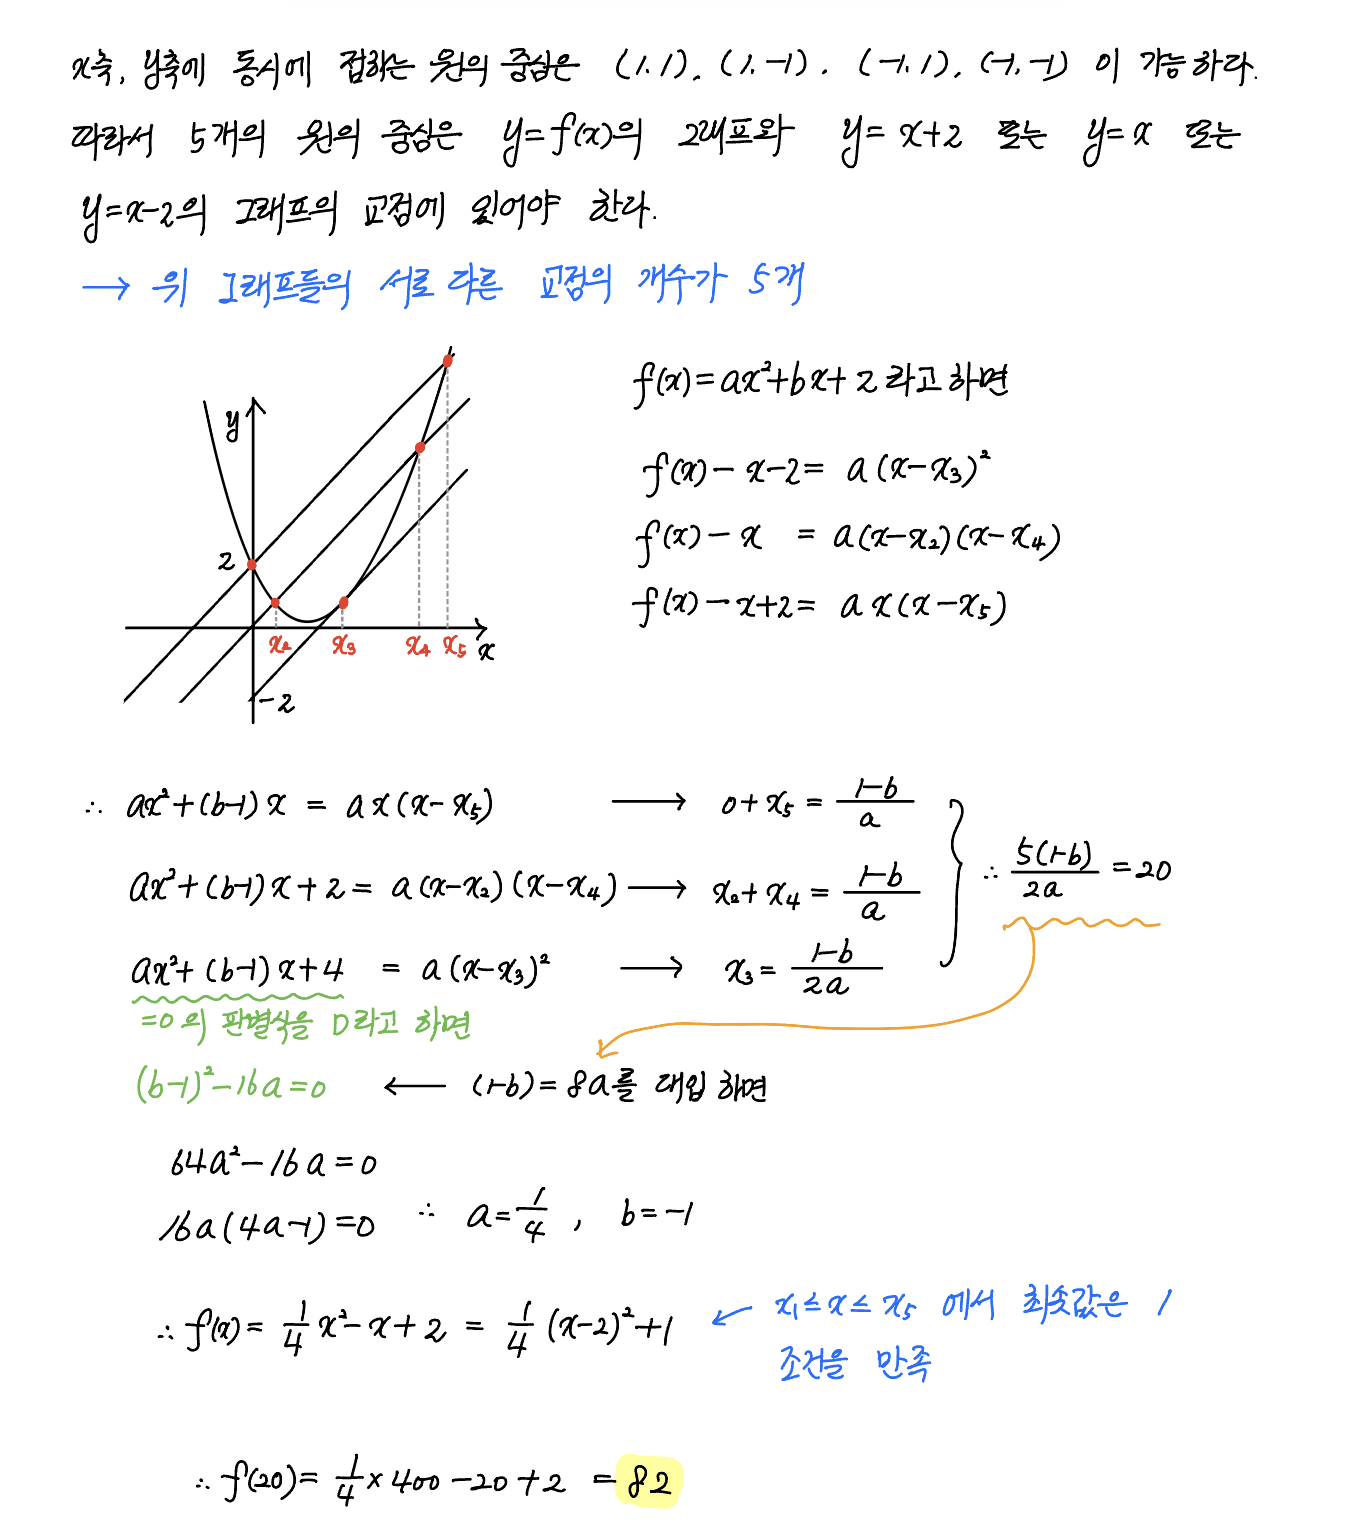 x축, y축에 동시에 접하는 원의 중심은 (1, 1), (1, -1), (-1, 1), (-1, -1) 이 가능하다.
따라서 5개의 원의 중심은 y=f(x)의 그래프와 y=x+2 또는 y=x 또는
y=x-2의 그래프의 교점에 있어야 한다.
→ 위 그래프들의 서로 다른 교점의 개수가 5개
y
2
-2
x₂ x₃ x₄ x₅ x
f(x)=ax²+bx+2 라고 하면
f(x)-x-2= a(x-x₃)²
f(x)-x = a(x-x₂)(x-x₄)
f(x)-x+2= ax(x-x₅)
∴ ax²+(b-1)x = ax(x-x₅) → 0+x₅ = (1-b)/a
ax²+(b-1)x+2 = a(x-x₂)(x-x₄) → x₂+x₄ = (1-b)/a ∴ 5(1-b)/2a = 20
ax²+(b-1)x+4 = a(x-x₃)² → x₃ = (1-b)/2a
=0의 판별식을 D라고 하면
(b-1)²-16a=0 ← (1-b)=8a를 대입하면
64a²-16a=0
16a(4a-1)=0 ∴ a=1/4, b=-1
∴ f(x)= 1/4 x²-x+2 = 1/4 (x-2)²+1 ← x₁≤x≤x₅ 에서 최솟값은 1
조건을 만족
∴ f(20)= 1/4 × 400-20+2 = 82